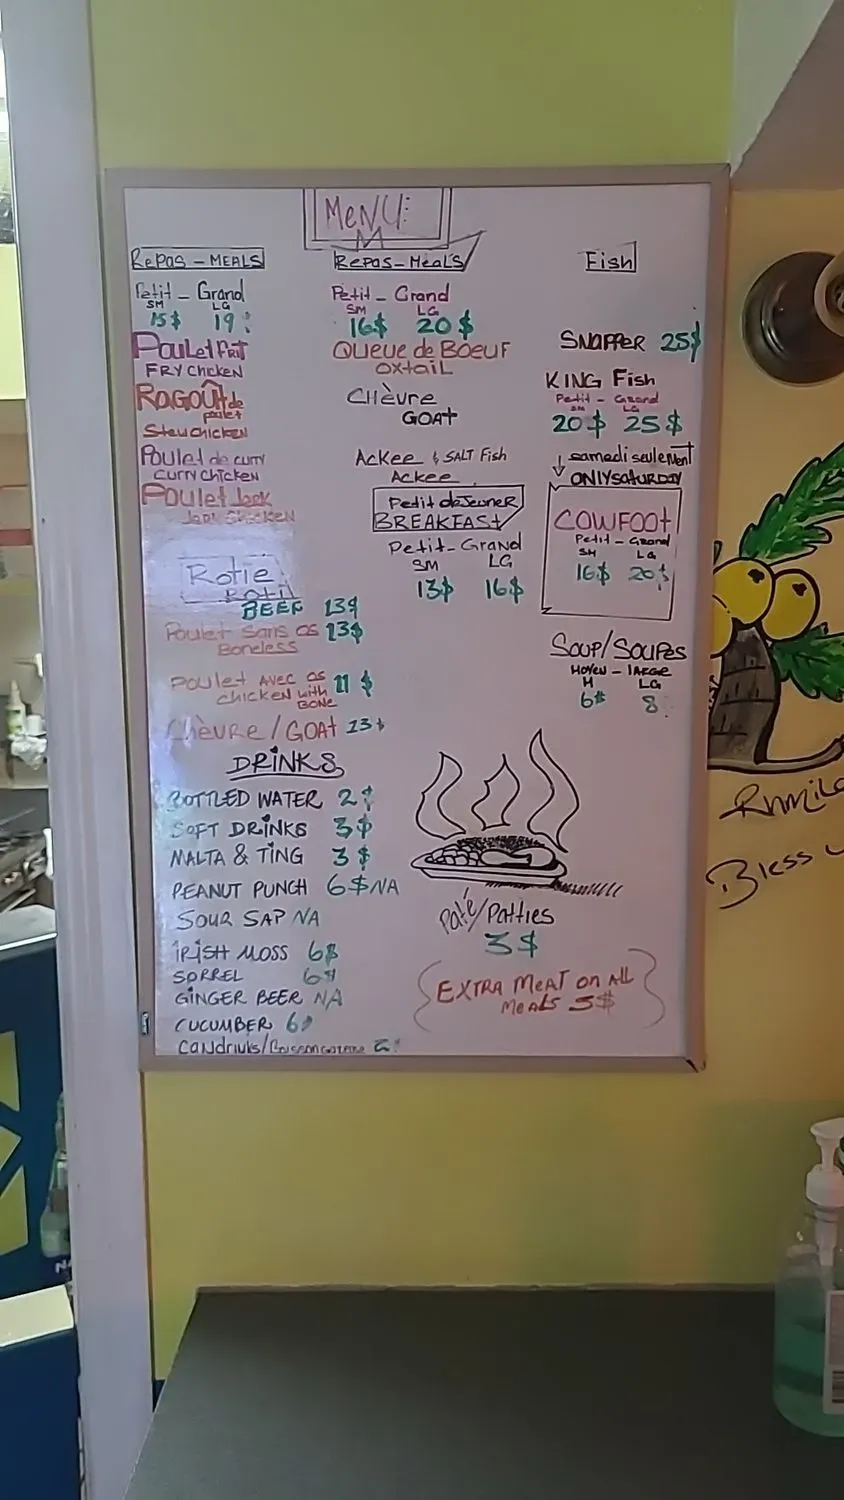 MENU
REPAS - MEALS
Petit - Grand
SM LG
15$ 19
Poulet Frit
FRY CHICKEN
RAGOÛT de poulet
Stew CHICKEN
Poulet de curry
CURRY CHICKEN
Poulet Jerk
Jerk CHICKEN
Rotie
ROTIL
BEEF 13$
Poulet Sans os 13$
Boneless
Poulet AVEC os 11 $
chicken with BONE
Chèvre / GOAT 13$
DRINKS
BOTTLED WATER 2$
SOFT DRINKS 3$
MALTA & TING 3$
PEANUT PUNCH 6$ NA
SOUR SAP NA
IRISH MOSS 6$
SORREL 6$
GINGER BEER NA
CUCUMBER 6$
CanDriuks/
REPAS-MeaLS
Petit - Grand
SM LG
16$ 20$
QUEUE de BOEUF
OXtaiL
CHèvre
GOAt
ACKEE & SALT Fish
ACKEE
Petit deJeuneR
BREAKFASt
Petit - GraNd
SM LG
13$ 16$
Paté/Patties
3$
EXTRA MeAT on ALL
MeALS 3$
Fish
SNAPPER 25$
KING Fish
Petit - Grand
SM LG
20$ 25$
samedi seulement
ONLY SATURDAY
COWFOOt
Petit - Grand
SM LG
16$ 20$
SOUP/SOUPES
MOYEN - lARGE
M LG
6$ 8
Bless